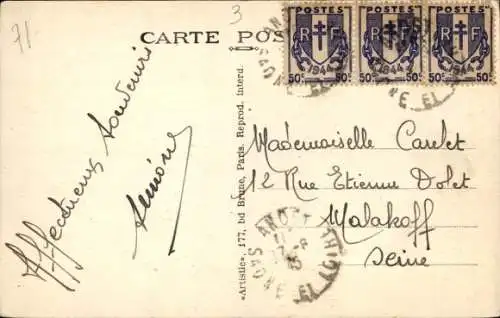 71
3
CARTE POS
POSTES
RF
1944
50c 50c
POSTES
RF
1944
50c 50c
RF
50c 50c
Affectueux Souvenirs
Simone
«Artistic», 177, bd Brune, Paris. Reprod. interd.
Mademoiselle
12 Rue Etienne Dolet
Malakoff
Seine
SAONE ET